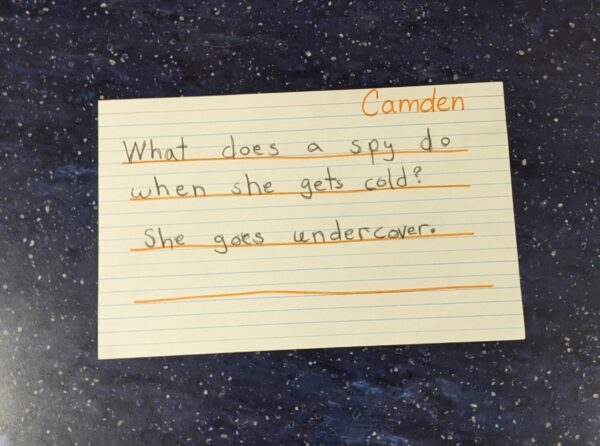 Camden
What does a spy do
when she gets cold?
She goes undercover.